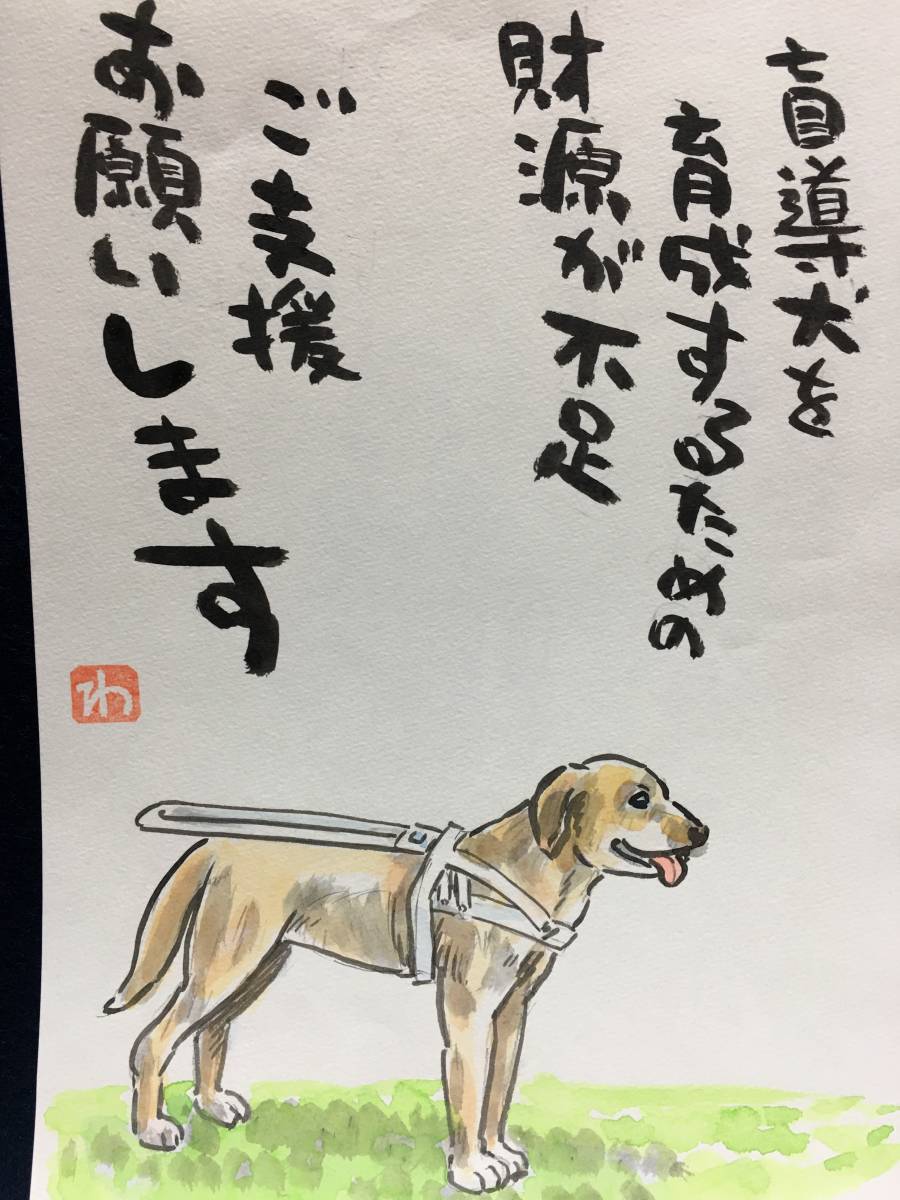 盲導犬を
育成するための
財源が不足
ご支援
お願いします